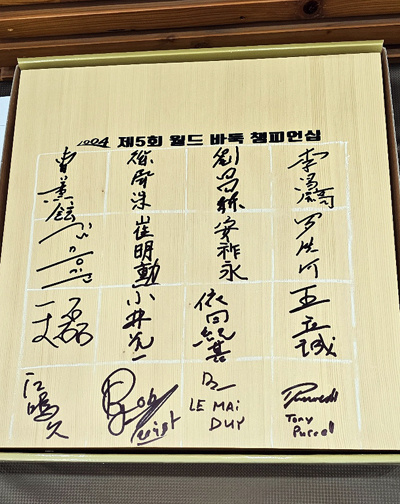 1004 제5회 월드 바둑 챔피언십
曺薰鉉
徐奉洙
劉昌赫
李昌鎬
崔明勳
安祚永
罗洗河
王磊
小林光一
依田紀基
王立誠
江鳴久
Rob
LE MAI
DUY
Tony
Purcell